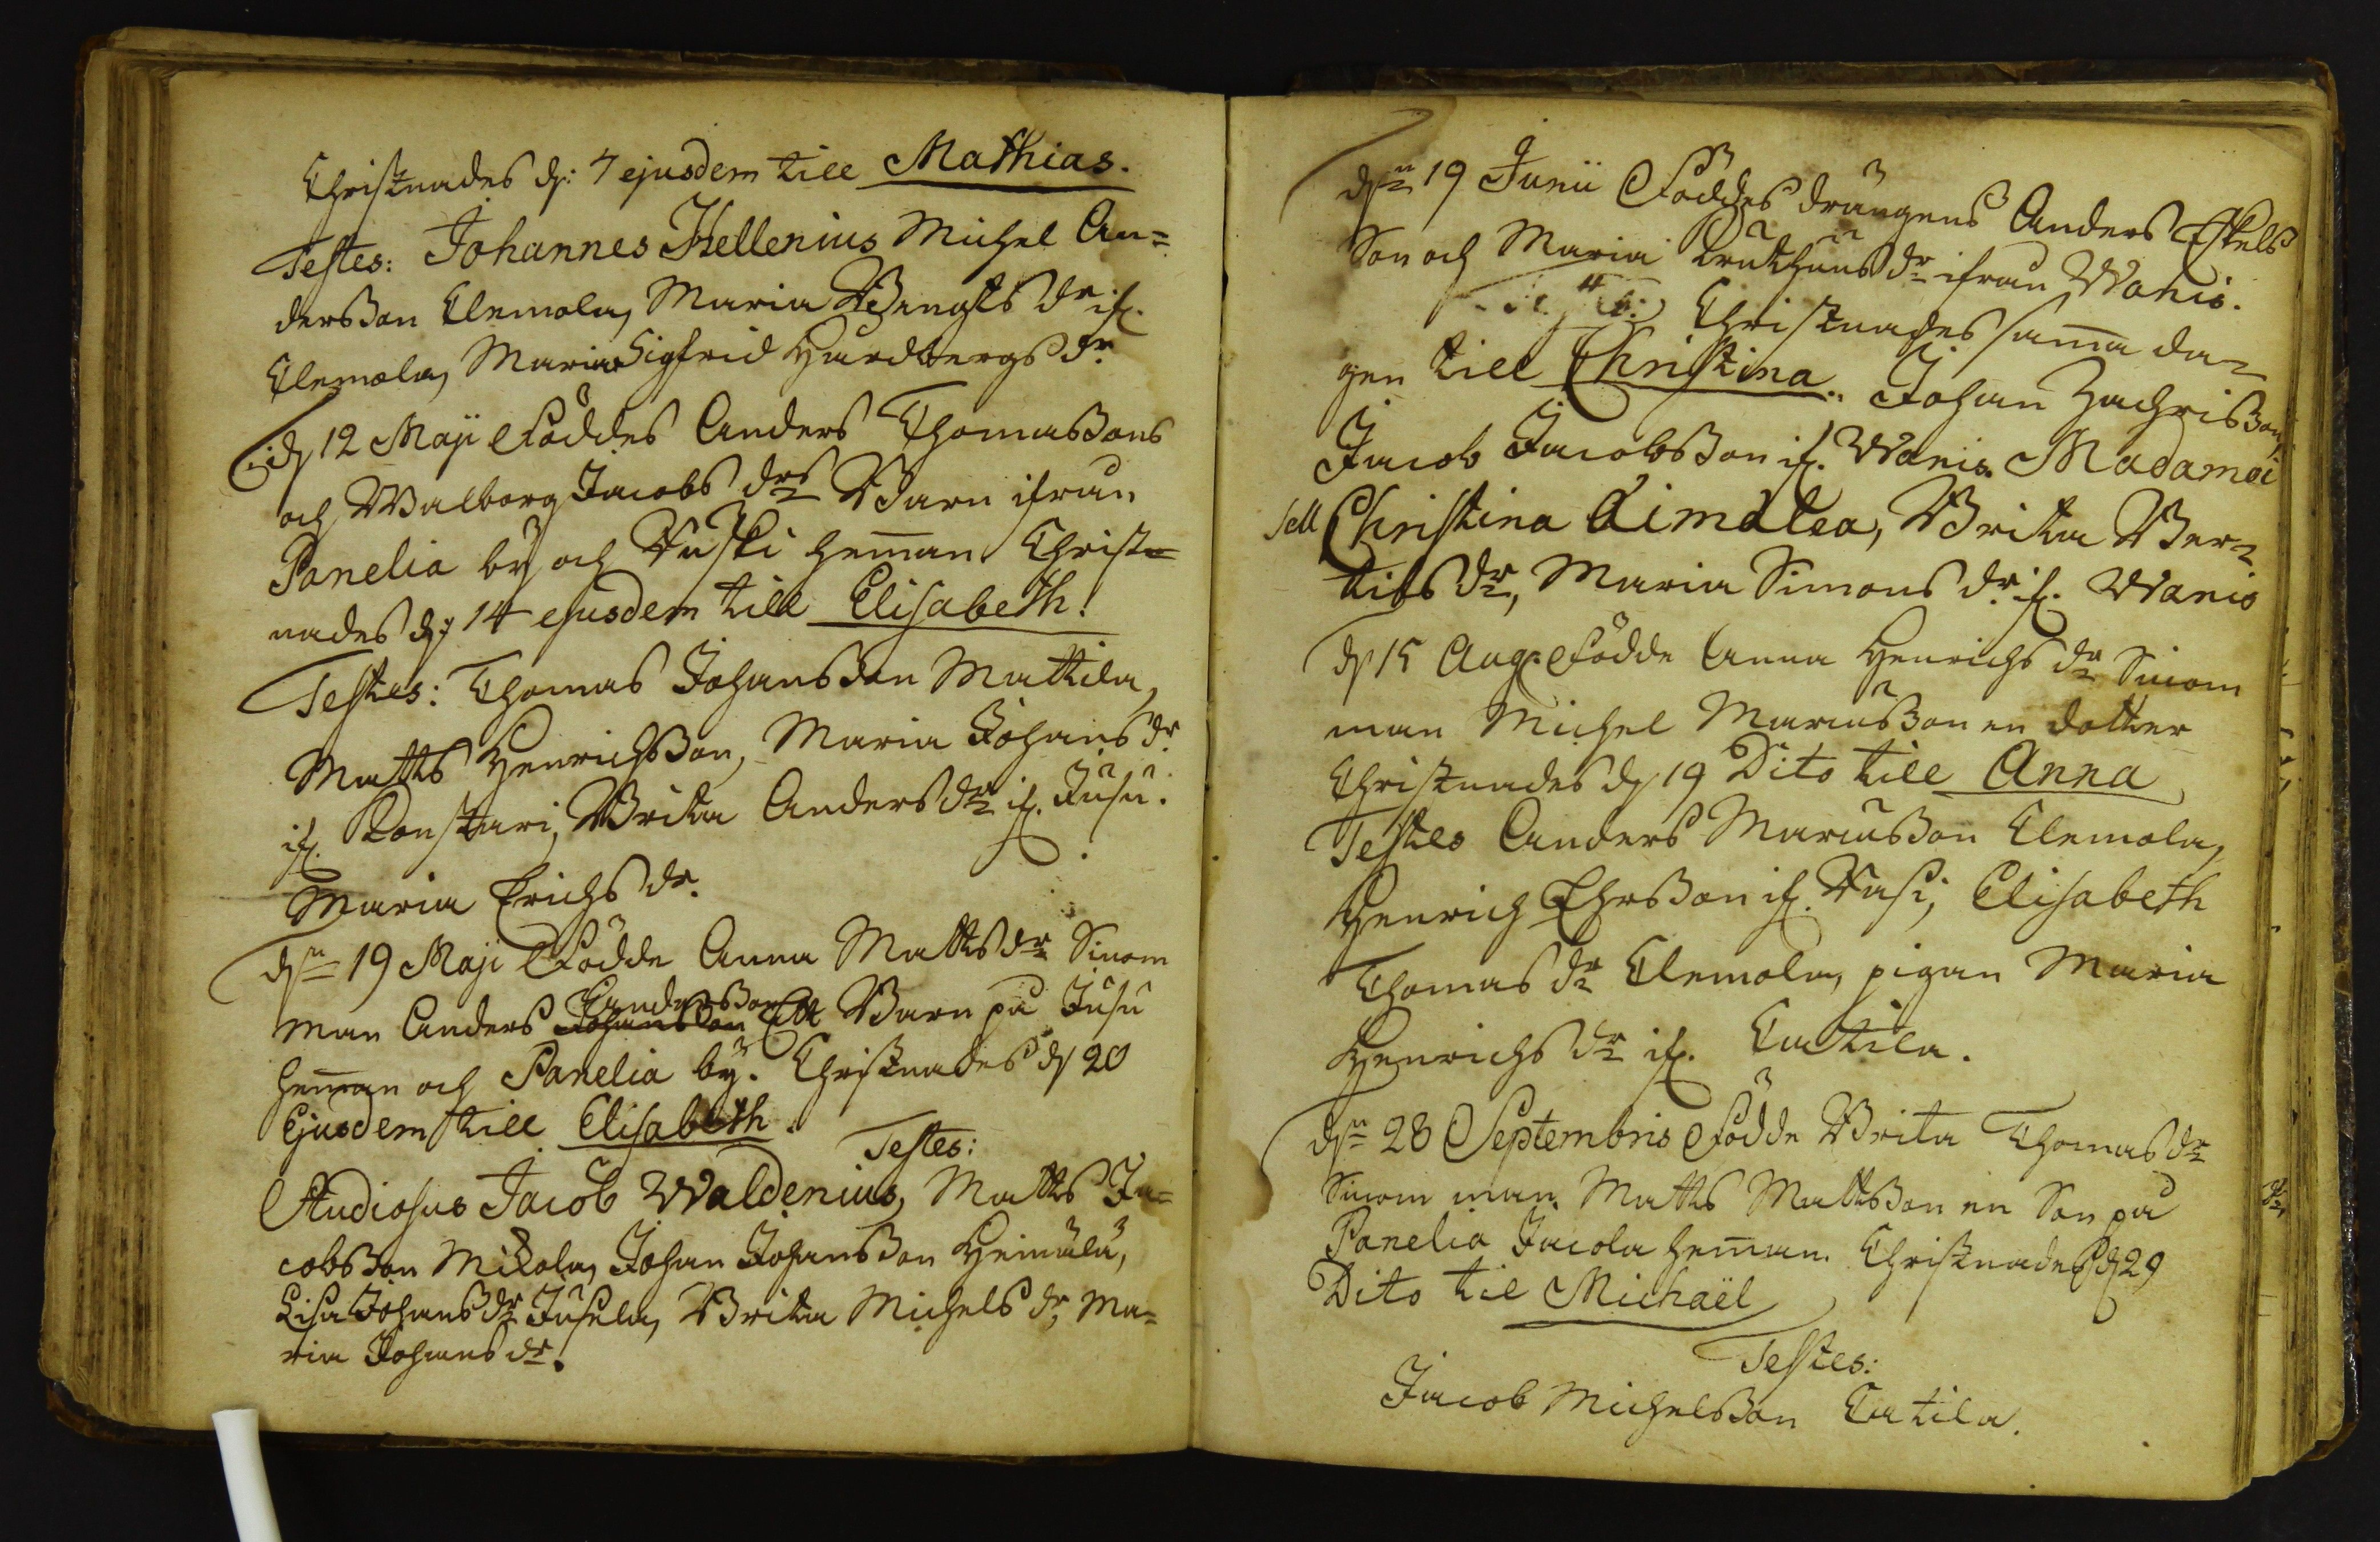 Christnades d: 4 ejusdem till Mathias.
Testes: Johannes Hellenius Michel An=
dersson Clemola, Maria Bengts dr if.
Clemola, Maria Sigfrid Hurdbergs dr
d 12 Maji Föddes Anders Thomassons
och Walborg Jacobs drs Barn ifrån
Panelia by och Tuski hemman Christ=
nades d: 14 ejusdem till Elisabeth.
Testes: Thomas Johansson Mattila,
Matts Henrichsson, Maria Johans dr
if. Konstari, Brita Anders dr if. Jusu.
Maria Erichs dr.
dn 19 Maji Födde Anna Matts dr Sinom
man Anders Andersson Ett Barn på Jusu
hemman och Panelia by. Christnades d 20
Ejusdem till Elisabeth.
Testes:
Studiosus Jacob Waldenius, Matts Ja=
cobsson Mikola, Johan Johansson Heimälä,
Lisa Johans dr Jusela, Brita Michels dr, Ma=
ria Johans dr.
dn 19 Junii Föddes drängens Anders Eskels
Son och Maria dr ifrån Wanis.
Christnades samma da=
gen till Christina. Johan Zachrisson,
Jacob Jacobsson if. Wanis. Madamoi
sell Christina Aimalea, Brita Ber=
tils dr, Maria Simons dr if. Wanis
d 15 Aug: Födde Anna Henrichs dr Sinom
man Michel Marcusson en dotter
Christnades d 19 Dito till Anna
Testes Anders Marcusson Clemola,
Henrich Ehrsson if. Elisabeth
Thomas dr Clemola, pigan Maria
Henrichs dr if. Catila.
dn 28 Septembris Födde Brita Thomas dr
Sinom man Matts Mattsson en Son på
Panelia Jacola hemman. Christnades d 29
Dito til Michaël
Testes:
Jacob Michelsson Catila.